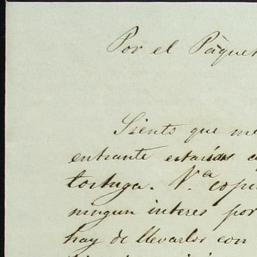 Por el Paquet
Siento que me
entrante estarías
tortuga. N.ª copi
ningun interes por
hay de llevarlos con